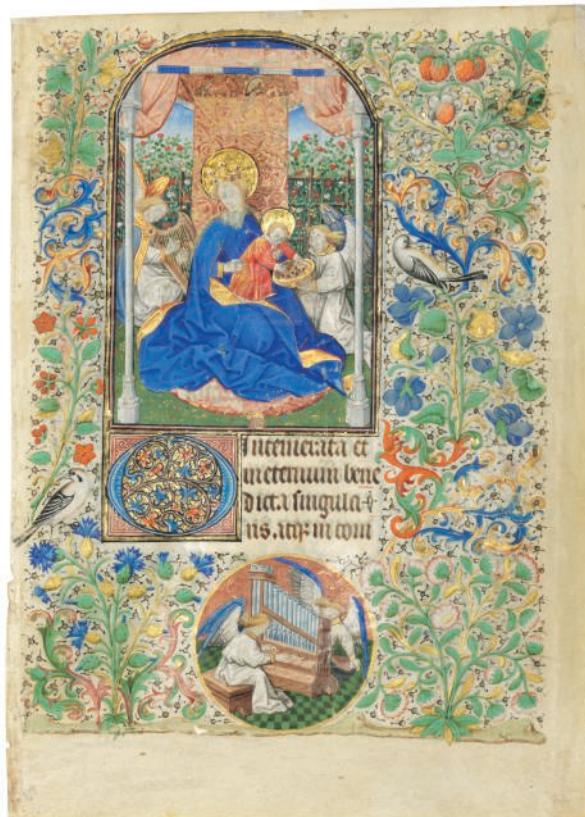 O Intemerata et
in eternum bene
dicta singula-
ris. atq; in com